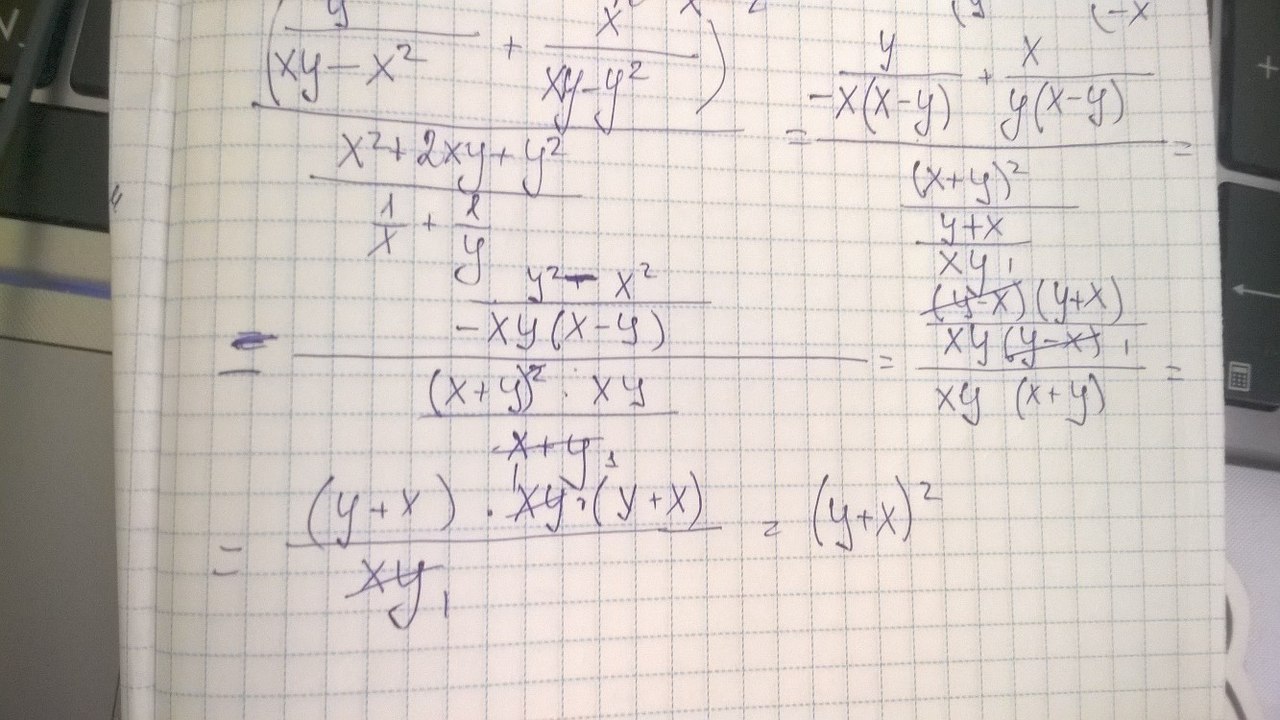 (y/(xy-x²) + x/(xy-y²)) / ((x²+2xy+y²)/(1/x + 1/y)) = (y/(-x(x-y)) + x/(y(x-y))) / ((x+y)²/((y+x)/(xy))) =
= ((y²-x²)/(-xy(x-y))) / ((x+y)² · xy/(x+y)) = ((y-x)(y+x)/(xy(y-x))) / (xy (x+y)) =
= (y+x) · xy · (y+x)/(xy) = (y+x)²